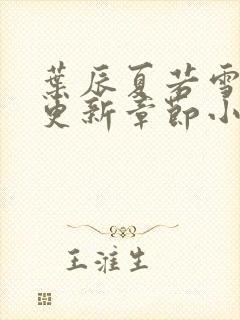 葉辰夏若雪
更新章節小
王淮生